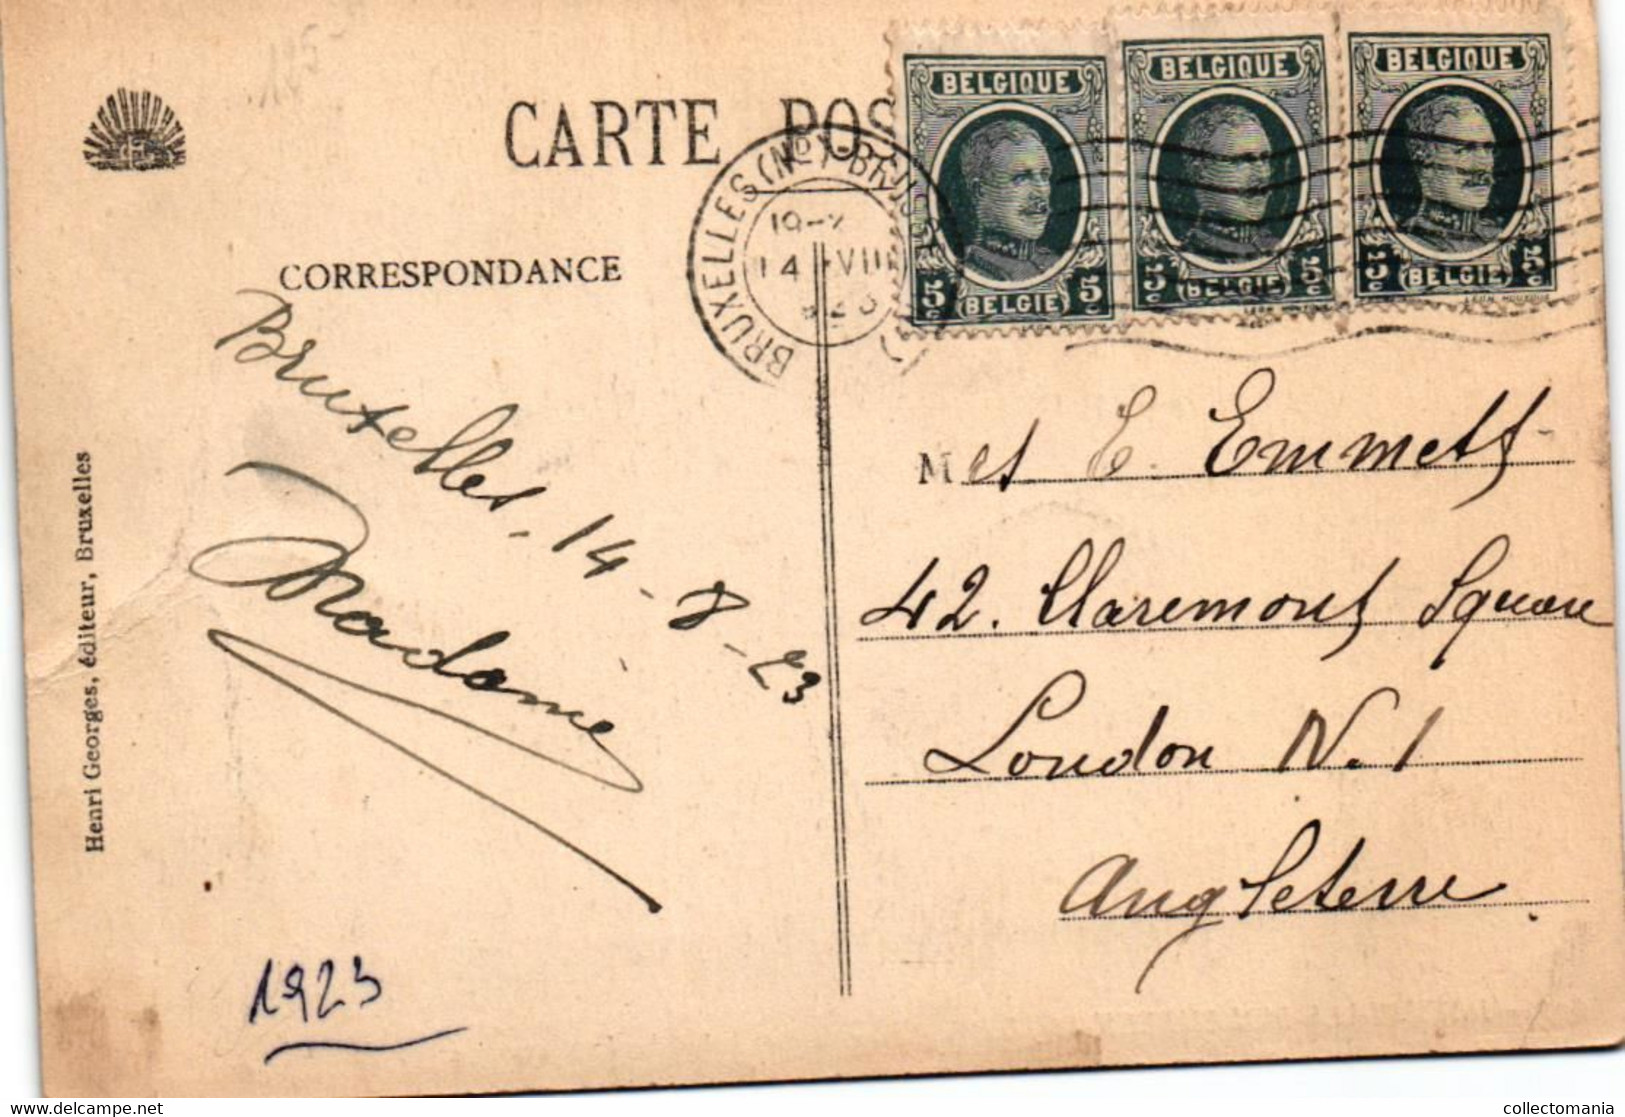 125
CARTE POS
CORRESPONDANCE
BRUXELLES (Nᴅ)
14 VIII
BELGIQUE
5c 5c
BELGIE
BELGIQUE
5c 5c
BELGIE
BELGIQUE
5c 5c
BELGIE
Bruxelles, 14-8-23
Madame
1923
Henri Georges, éditeur, Bruxelles
M E. Emmett
42. Claremont Square
London N.1
Angleterre.
collectomania